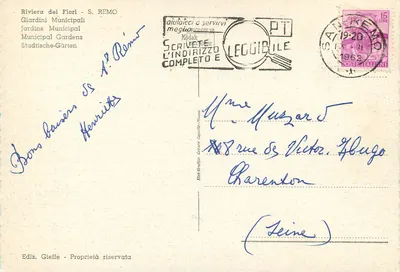 Riviera dei Fiori - S. REMO
Giardini Municipali
Jardins Municipal
Municipal Gardens
Stadtische-Gärten
aiutateci a servirvi
meglio
SCRIVETE
L'INDIRIZZO
COMPLETO E
LEGGIBILE
PT
SAN REMO
19-20
1962
Bons baisers de St Rémo
Henriette
Mme Mussard
8 rue de Victor Hugo
Charenton
(Seine)
Ediz. Gieffe - Proprietà riservata